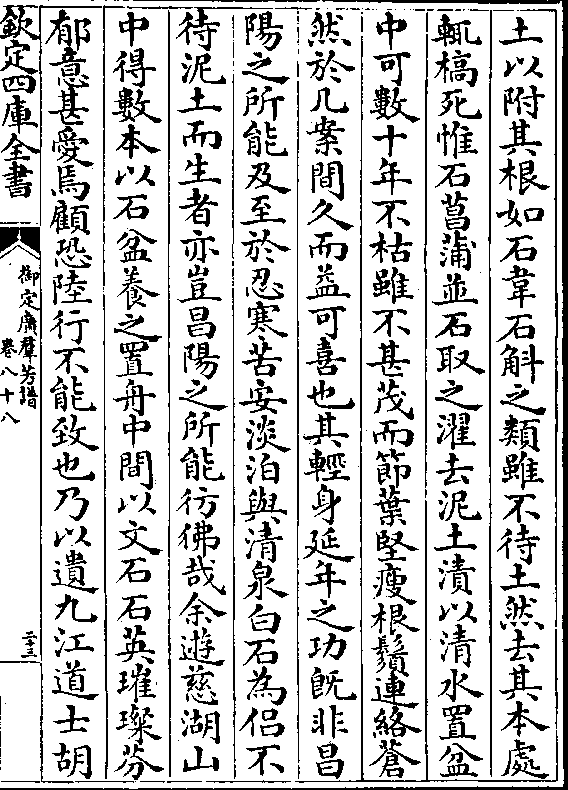 土以附其根如石韋石斛之類雖不待土然去其本處
輒槁死惟石菖蒲並石取之濯去泥土漬以清水置盆
中可數十年不枯雖不甚茂而節葉堅瘦根鬚連絡蒼
然於几案間久而益可喜也其輕身延年之功旣非昌
陽之所能及至於忍寒苦安淡泊與清泉白石為侣不
待泥土而生者亦豈昌陽之所能彷彿哉余遊慈湖山
中得數本以石盆養之置舟中間以文石石英璀璨芬
郁意甚愛焉顧恐陸行不能致也乃以遺九江道士胡
欽定四庫全書
御定廣羣芳譜
卷八十八
二十三